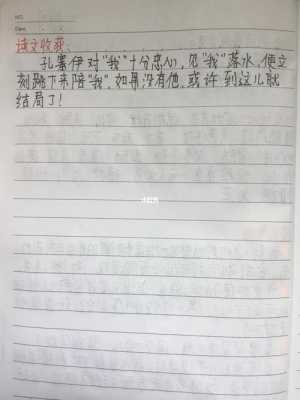 NO.
Date
读文收获:
孔塞伊对“我”十分忠心,见“我”落水,便立
刻跳下来陪“我”,如果没有他,或许到这儿就
结局了!
小红书